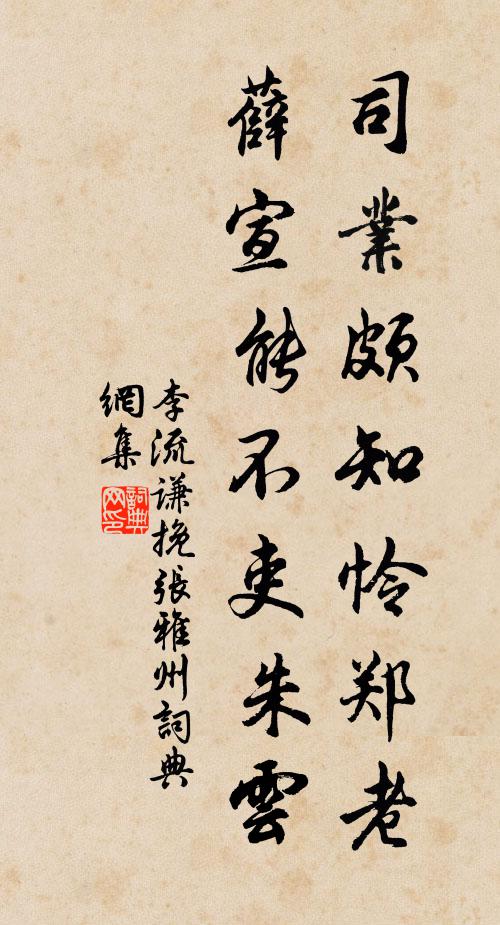 司業頗知怜郑老
薛宣能不吏朱雲
李流谦挽張雅州詞典
網集
詞典网印